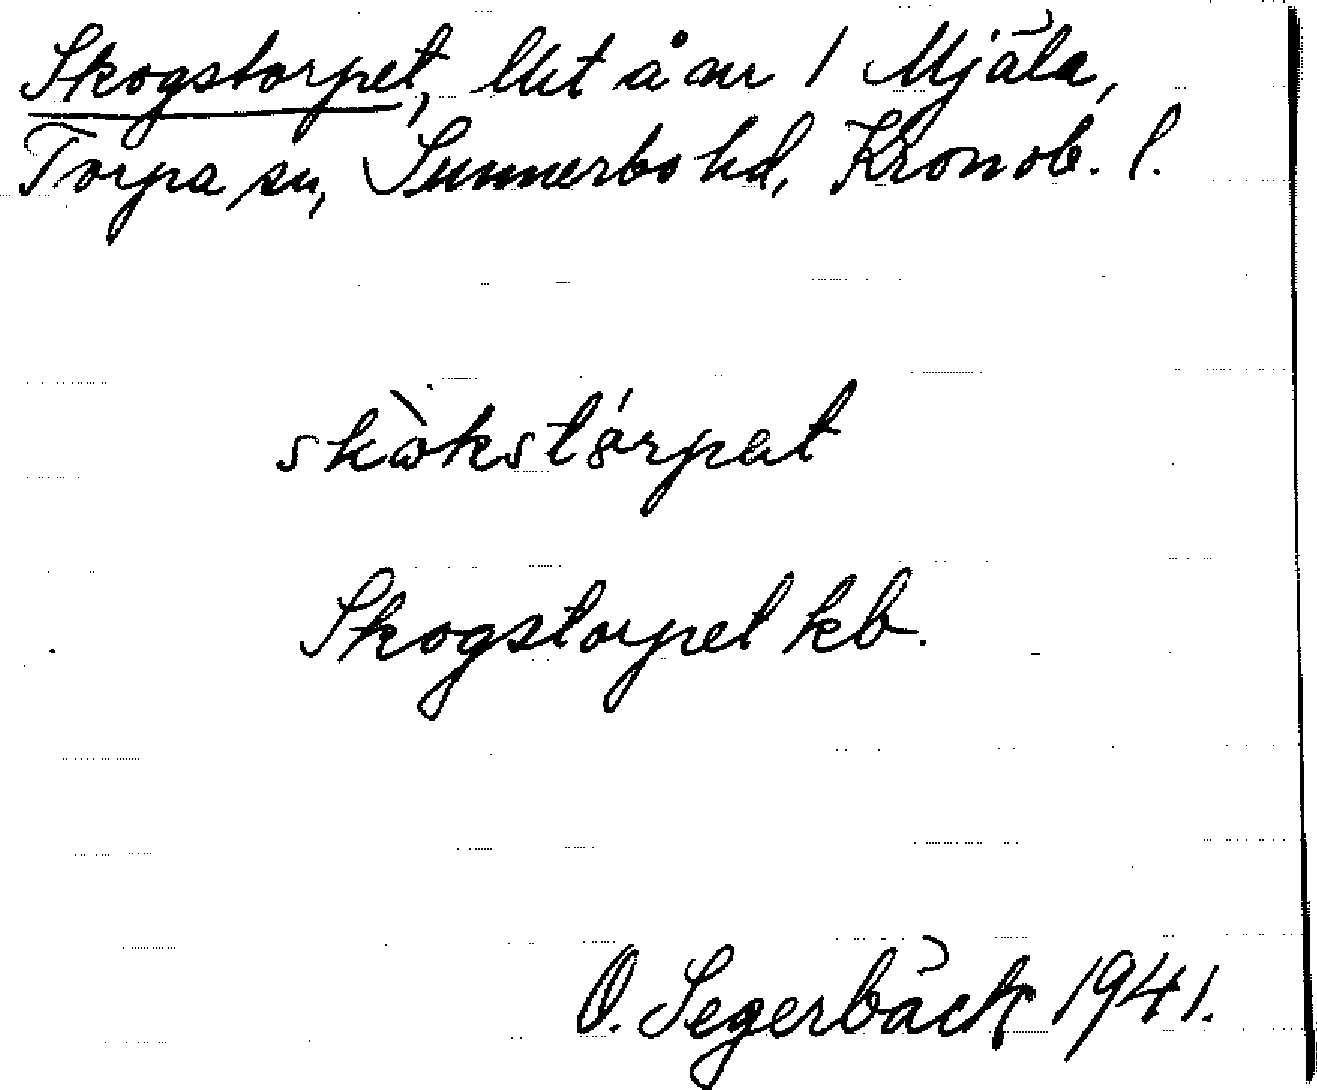 Skogstorpet, lht å nr 1 Mjäla,
Torpa sn, Sunnerbo hd, Kronob. l.
skòkstårpat
Skogstorpet kb.
O. Segerbäck 1941.